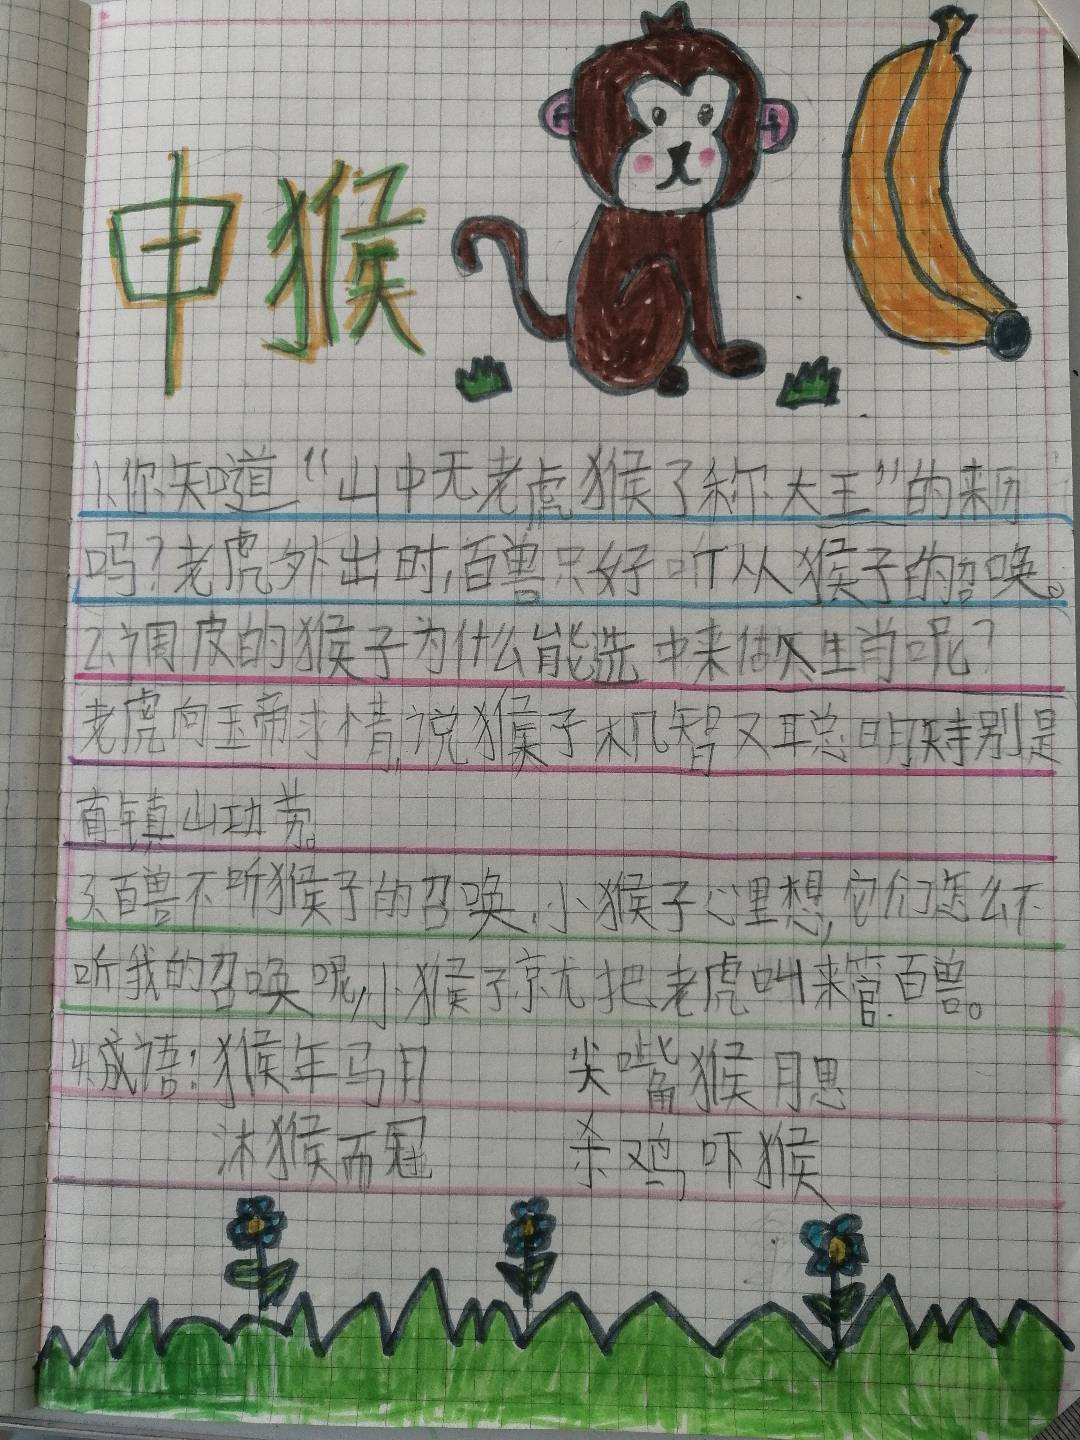 申猴
1、你知道“山中无老虎猴子称大王”的来历
吗?老虎外出时,百兽只好听从猴子的召唤。
2、调皮的猴子为什么能选中来做人生肖呢?
老虎向玉帝求情,说猴子机智又聪明,特别是
有镇山功劳。
3、百兽不听猴子的召唤,小猴子心里想,它们怎么不
听我的召唤呢,小猴子就把老虎叫来管百兽。
4、成语:猴年马月 尖嘴猴思
沐猴而冠 杀鸡吓猴